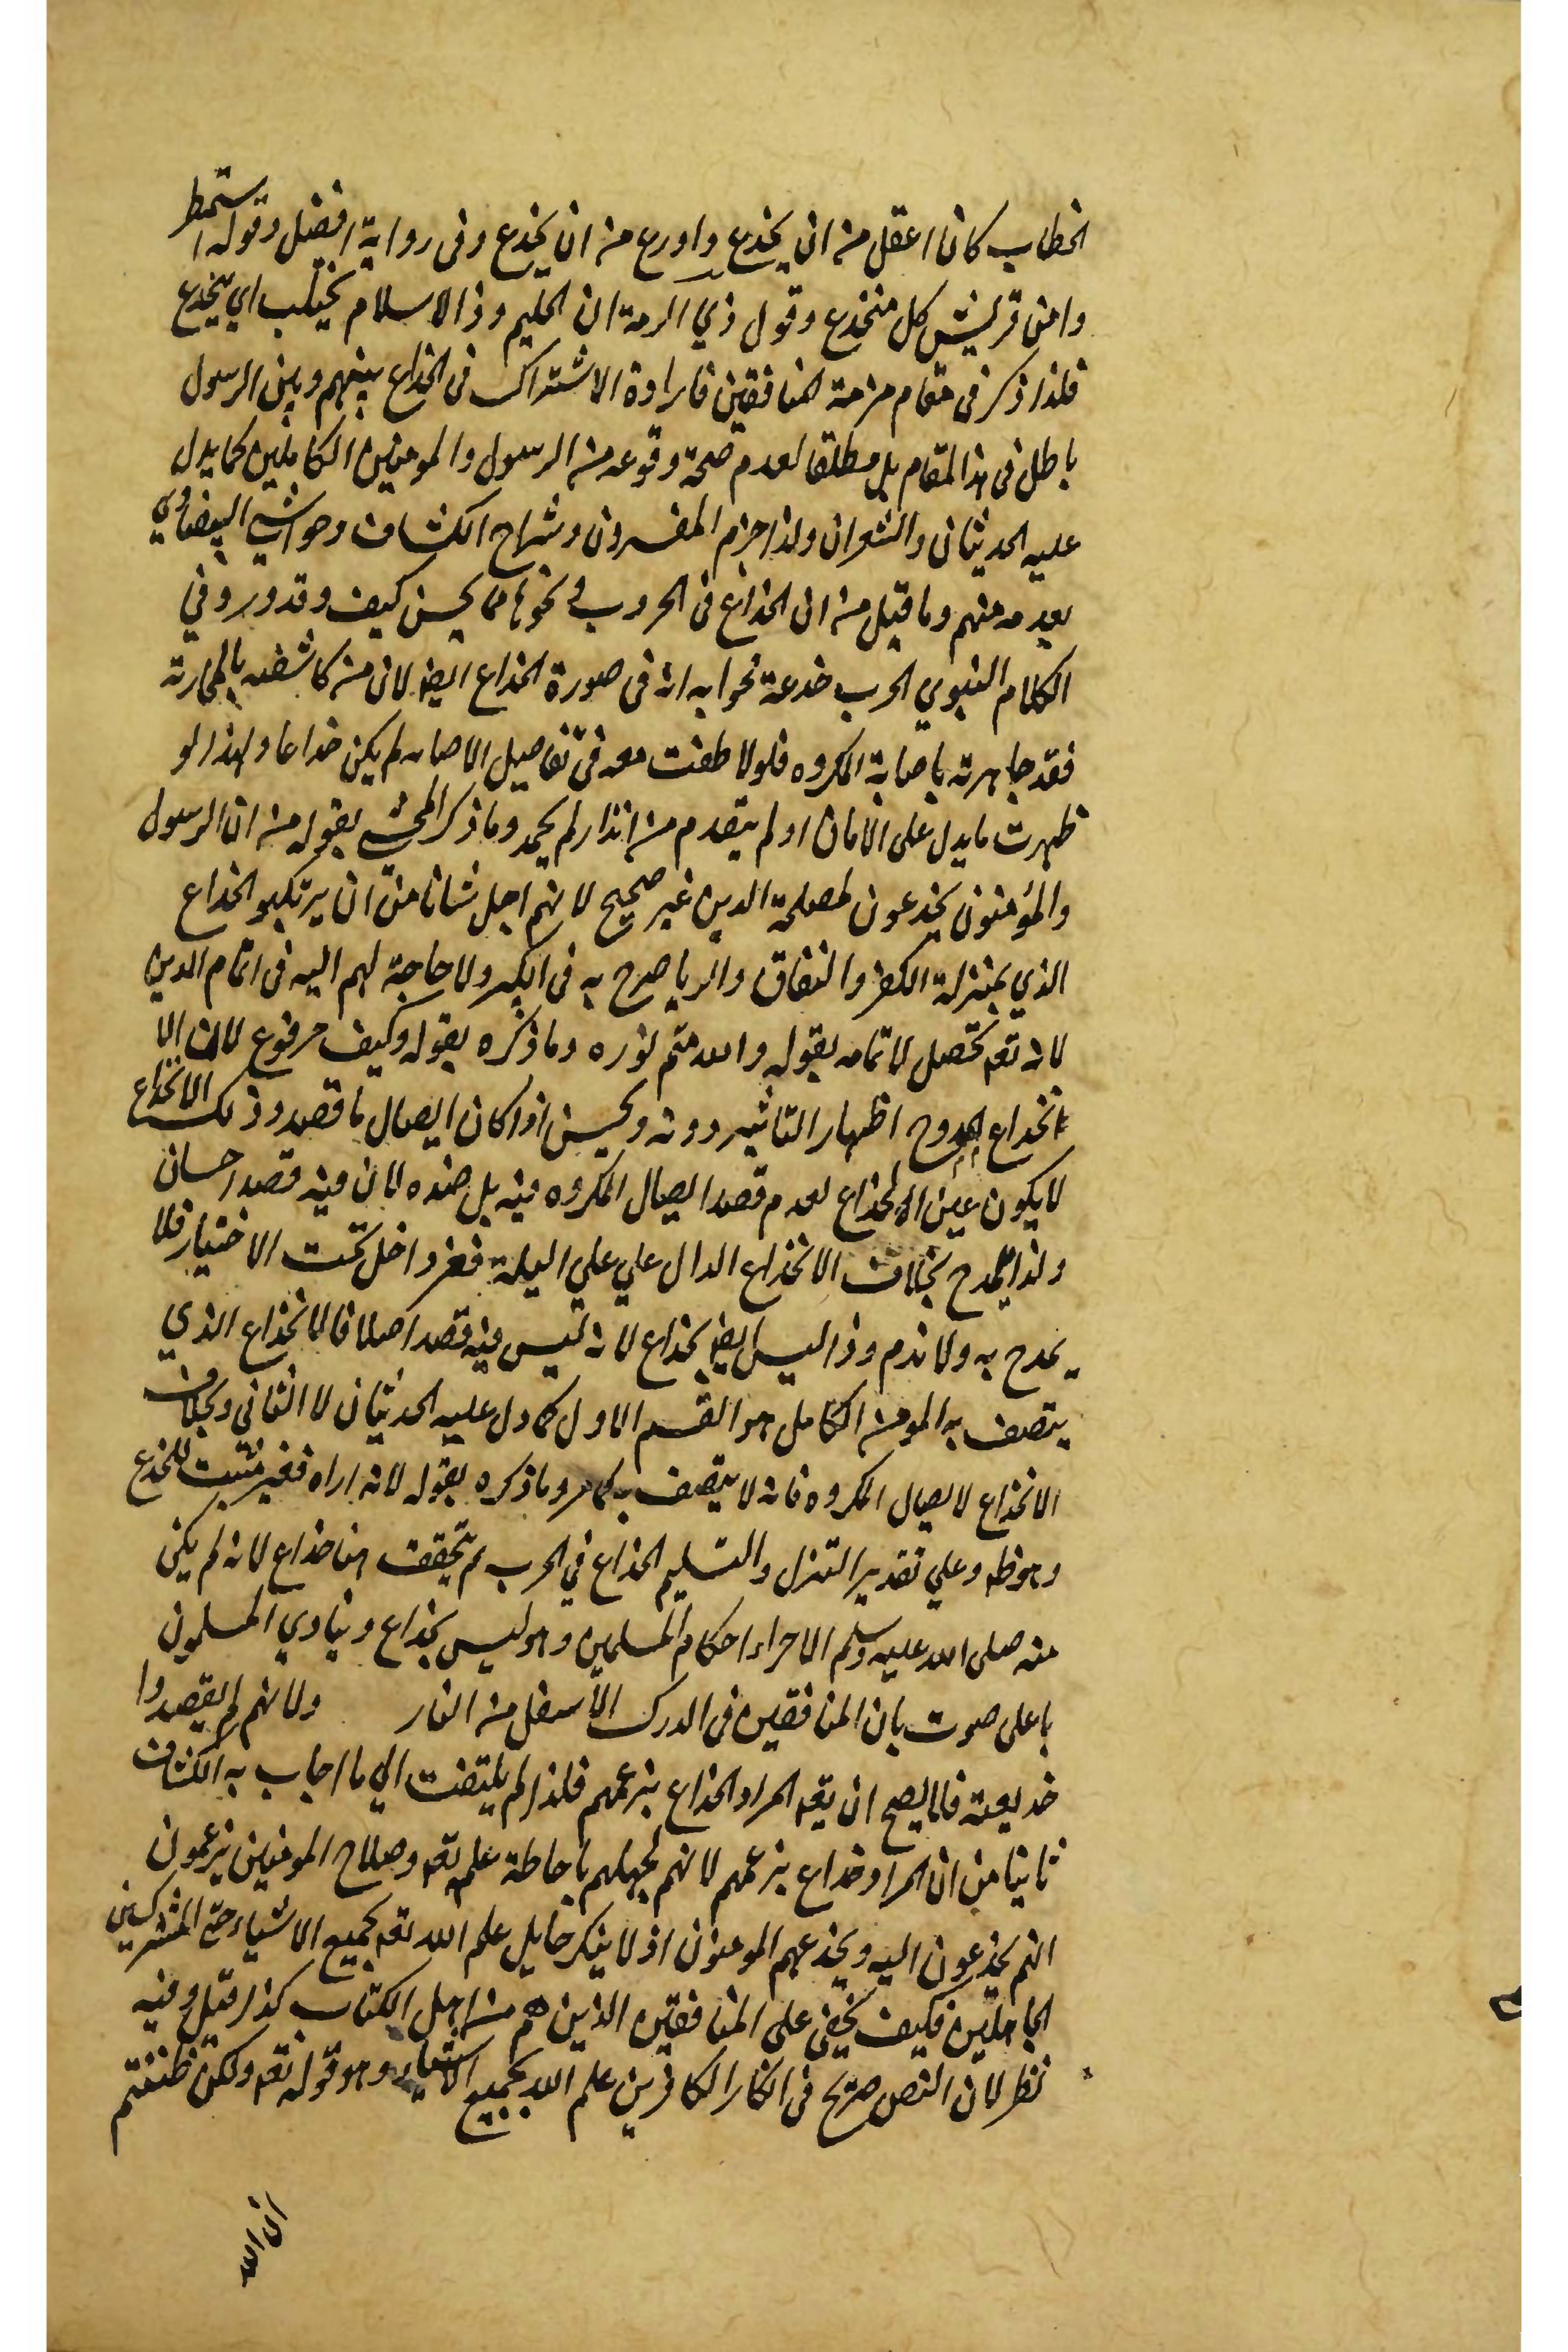 الخطاب كان اعقل من ان يخدع واورع من ان يخدع وفى رواية افضل وقوله استمطر
وا من قريش كل منخدع وقول ذي الرمة ان الحليم وذا الاسلام يختلب اي ينخدع
فلذا ذكر فى مقام مزمة المنافقين فارادة الاشتراك فى الخداع بينهم وبين الرسول
باطل فى هذا المقام بل مطلقا لعدم صحة وقوعه من الرسول والمومنين الكاملين كما يدل
عليه الحديثان والشعران ولذا جزم المفسرون وشراح الكشاف وحواشي البيضاوي
بعدمه منهم وما قيل من ان الخداع فى الحروب و نحوها مما يحسن كيف وقد ورد فى
الكلام النبوي الحرب خدعة فجوابه انه فى صورة الخداع ايضا لان من كاشفته بالمحاربة
فقد جاهرته باصابة المكروه فلو لاطفت معه فى تفاصيل الاصابه لم يكن خداعا ولهذا لو
ظهرت ما يدل على الامان او لم يتقدم من انذار لم يحمد وما ذكر المحشي بقوله من ان الرسول
والمؤمنون يخدعون لمصلحة الدين غير صحيح لانهم اجل شانا من ان يرتكبو الخداع
الذي بمنزلة الكفر والنفاق والريا صرح به فى الكبير ولا حاجة لهم اليه فى اتمام الدين
لانه تعه تحصل لاتمامه بقوله والله متم نوره وما ذكره بقوله وكيف مرفوع لان الا
انخداع الممدوح اظهار التاثير دونه ويحسن اذا كان ايصال ما قصد وذلك الانخداع
لا يكون عين الخداع لعدم قصد ايصال المكروه فيه بل ضده لان فيه قصد احسان
ولذا يمدح بخلاف الانخداع الدال علي علي البله فغير داخل تحت الاختيار فلا
يمدح به ولا نذم وذا ليس ايضا بخداع لانه ليس فيه قصد اصلا فالانخداع الذي
يتصف به المومن الكامل هو القسم الاول كما دل عليه الحديثان لا الثانى وبخلاف
الانخداع لايصال المكروه فانه لا يتصف به كما مر وما ذكره بقوله لانه اراه فغير مثبت للخدع
وهو ظه وعلي تقدير التنزل والتسليم الخداع في الحرب لم يتحقق هنا خداع لانه لم يكن
منه صلى الله عليه وسلم الا اجراء احكام المسلمين وهو ليس بخداع وينادي المسلمون
باعلى صوت بان المنافقين فى الدرك الاسفل من النار ولانهم لم يقصدوا
خديعته فلا يصح ان يقه المراد الخداع بزعمهم فلذا لم يلتفت الي ما اجاب به الكشاف
ثانيا من ان المراد خداع بزعمهم لانهم لجهلهم باحاطة علمه تعه وصلاح المومنين يزعمون
انهم يخدعون اليه ويخدعهم المومنون اذ لا ينكر خايل علم الله تعه بجميع الاشياء حتى المشركين
الجاهلين فكيف يخفى على المنافقين الذين هم من اهل الكتاب كذا قيل وفيه
نظر لان النص صريح فى انكار الكافرين علم الله بجميع الاشياء وهو قوله تعه ولكن ظننتم
ان الله